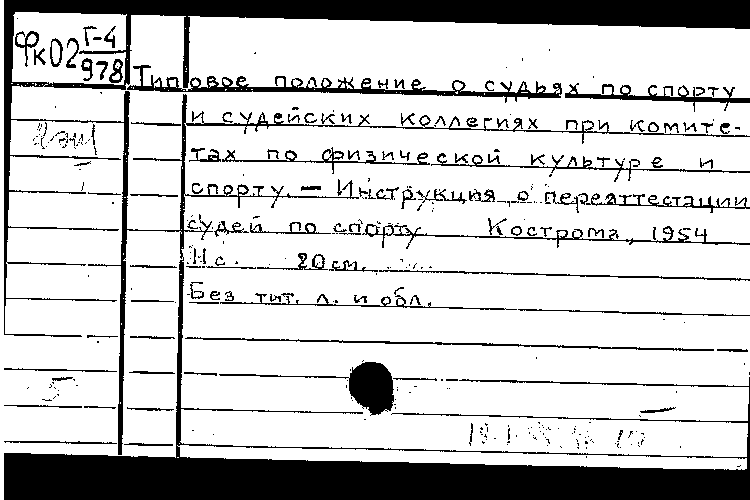 Фк02 Г-4/978
Типовое положение о судьях по спорту
и судейских коллегиях при комите-
тах по физической культуре и
спорту. — Инструкция о переаттестации
судей по спорту Кострома, 1954
с. 20 см.
Без тит. л. и обл.
5